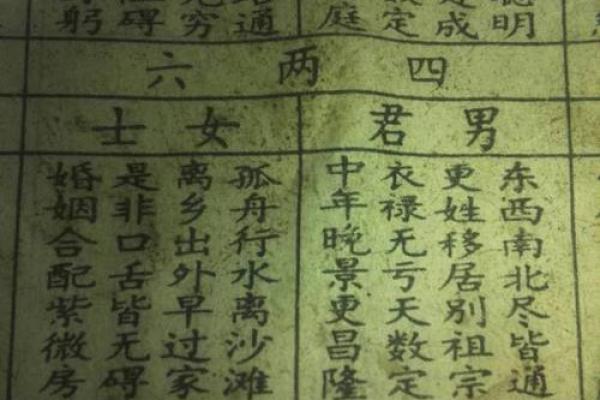 聪明
成
定
庭
通
无穷
碍
躬
四两六
男君
东西南北尽皆通
更姓移居别祖宗
衣禄无亏天数定
中年晚景更昌隆
女士
孤舟行水离沙滩
离乡出外早过家
是非口舌皆无碍
婚姻合配紫微房